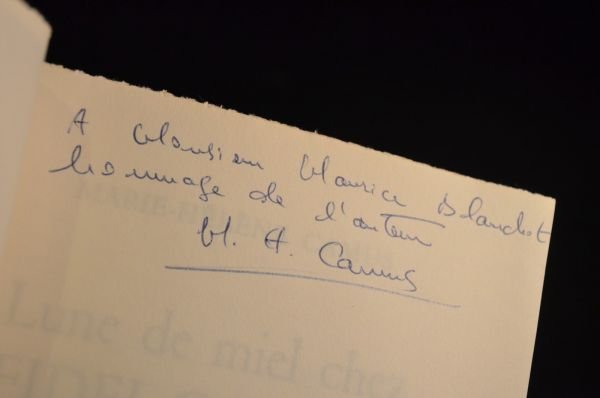 A Monsieur Maurice Blanchot
hommage de l'auteur
M. H. Camus
MARIE-HÉLÈNE CAMUS
Lune de miel chez
FIDEL